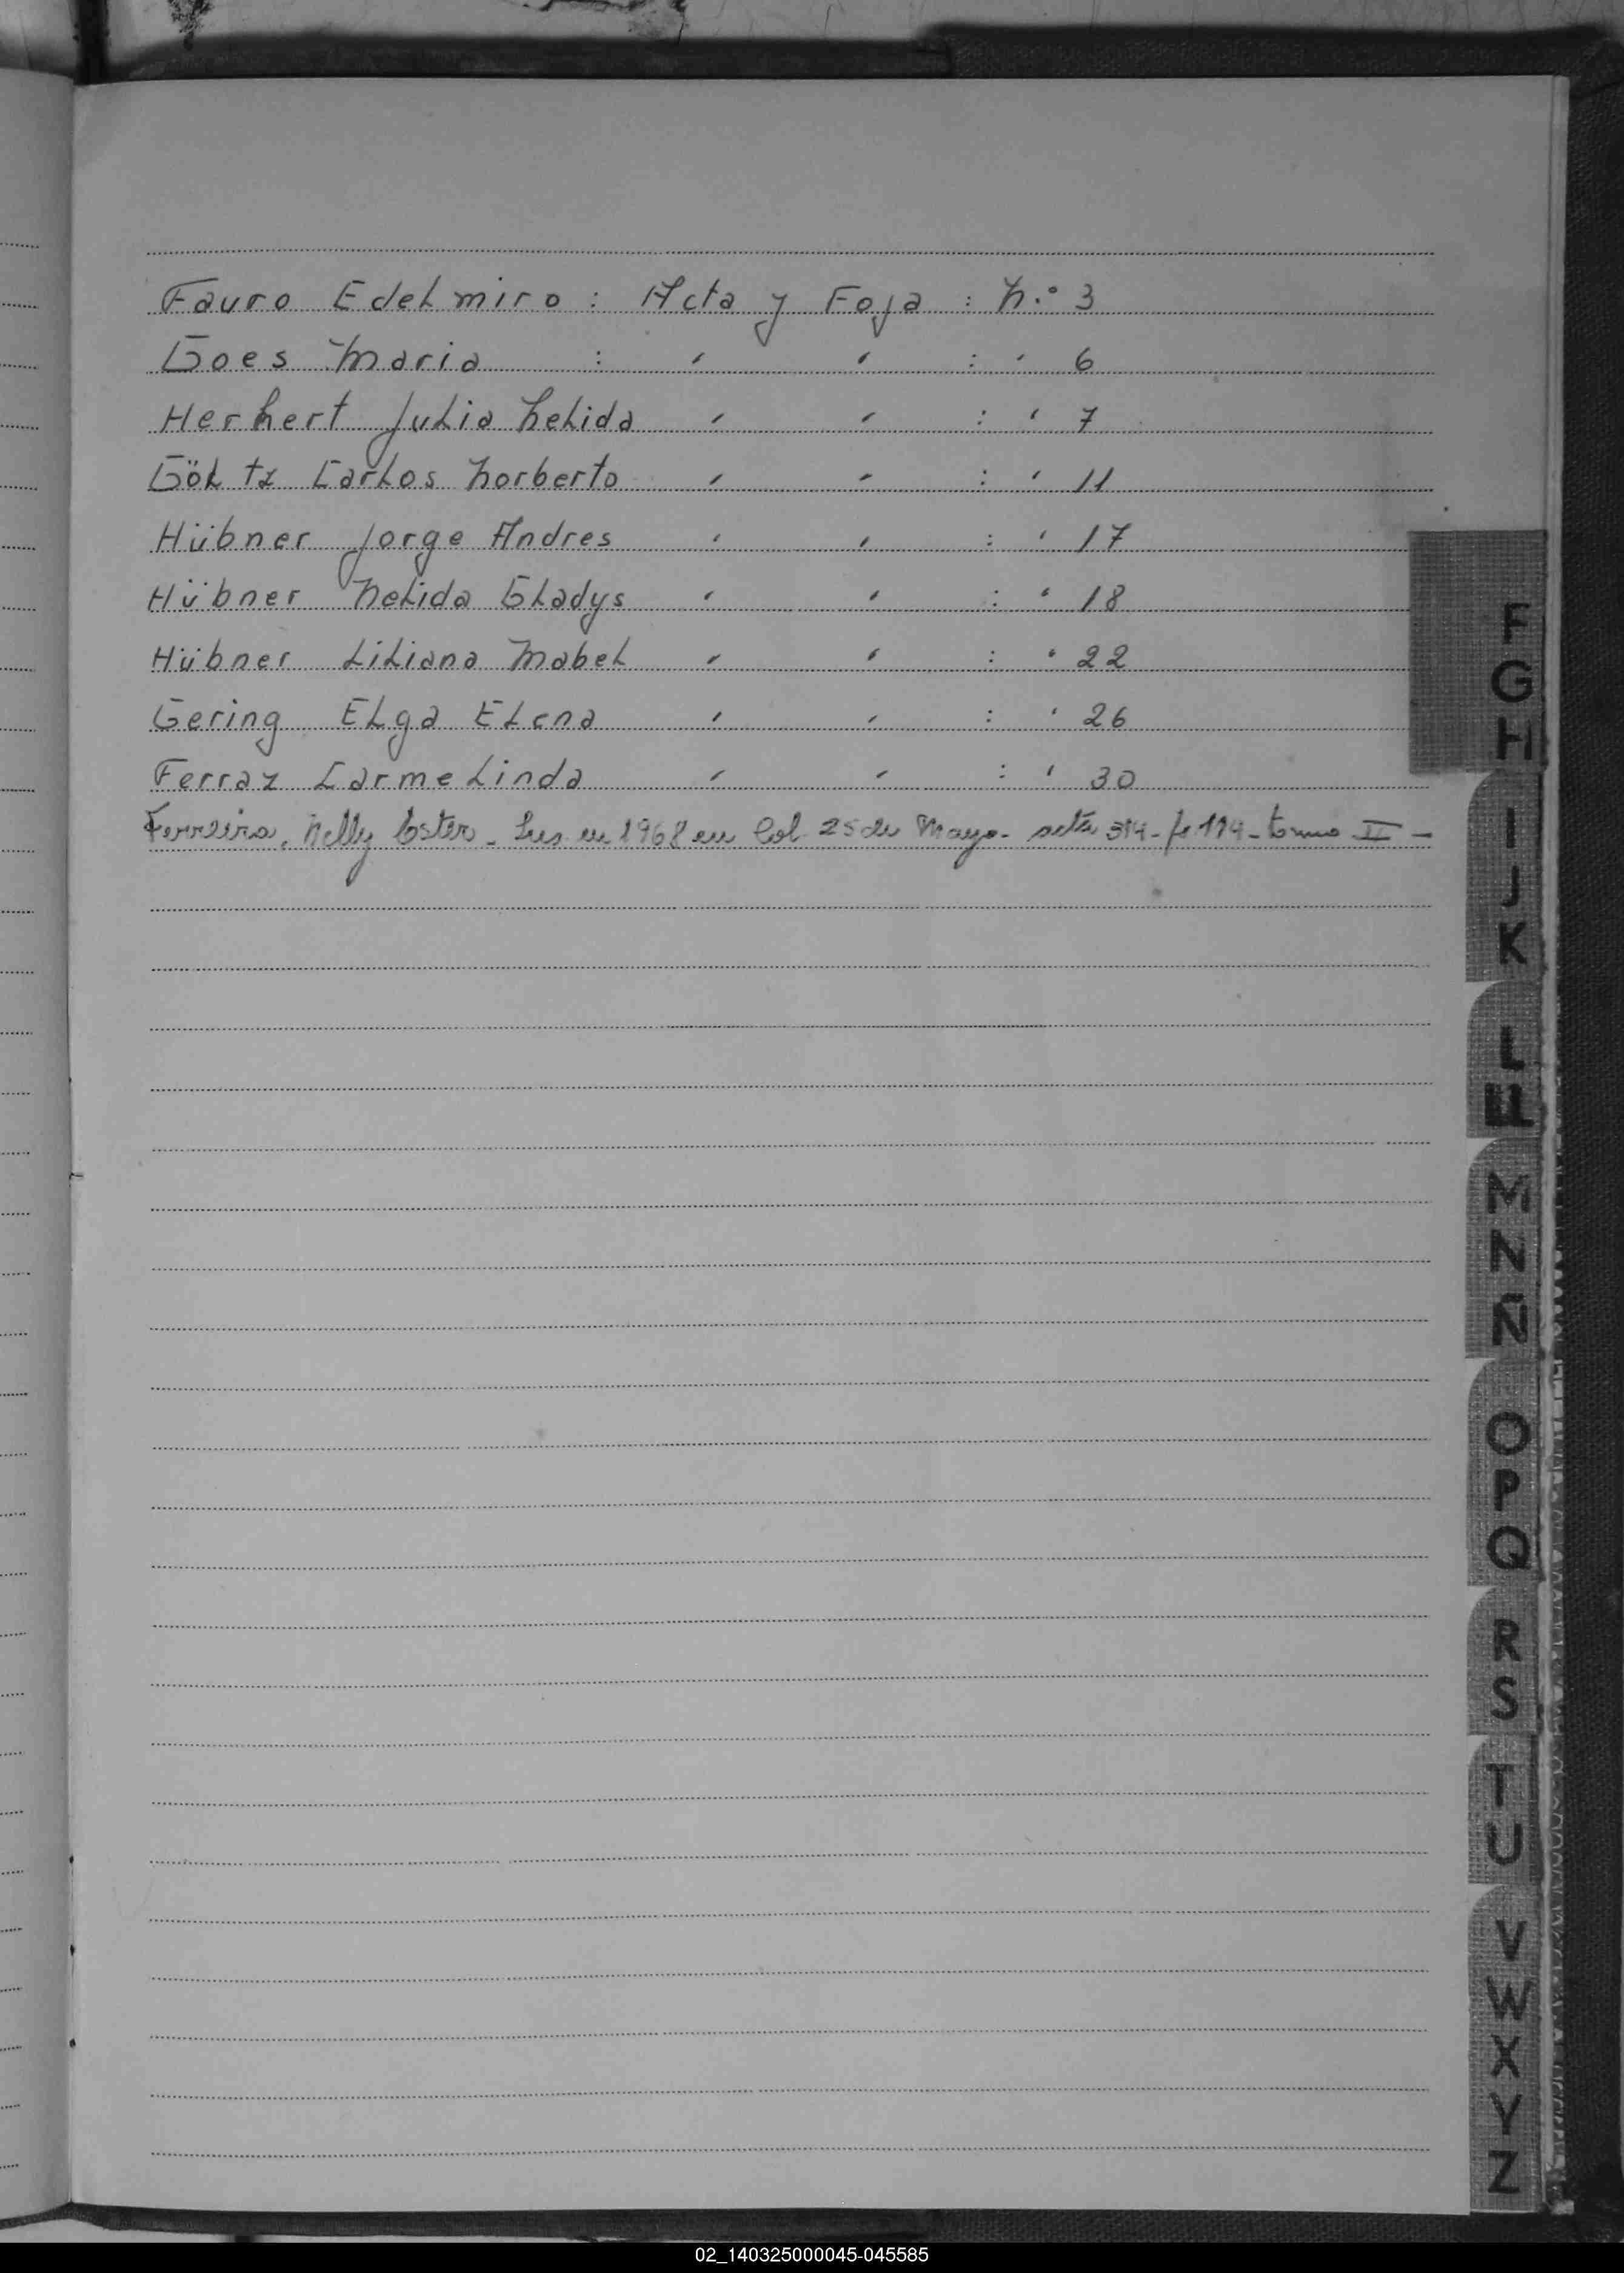 Fauro Edelmiro : Acta y Foja : N.º 3
Goes Maria : " " : " 6
Herhert Julia Nelida " " : " 7
Göltz Carlos Norberto " " : " 11
Hübner Jorge Andres " " : " 17
Hübner Nelida Gladys " " : " 18
Hübner Liliana Mabel " " : " 22
Gering Elga Elena " " : " 26
Ferraz Carmelinda " " : " 30
Ferreira, Nelly Ester - Ins en 1968 en Col 25 de Mayo - acta 314 - fo 114 - tomo II -
F
G
H
I
J
K
L
LL
M
N
Ñ
O
P
Q
R
S
T
U
V
W
X
Y
Z
02_140325000045-045585